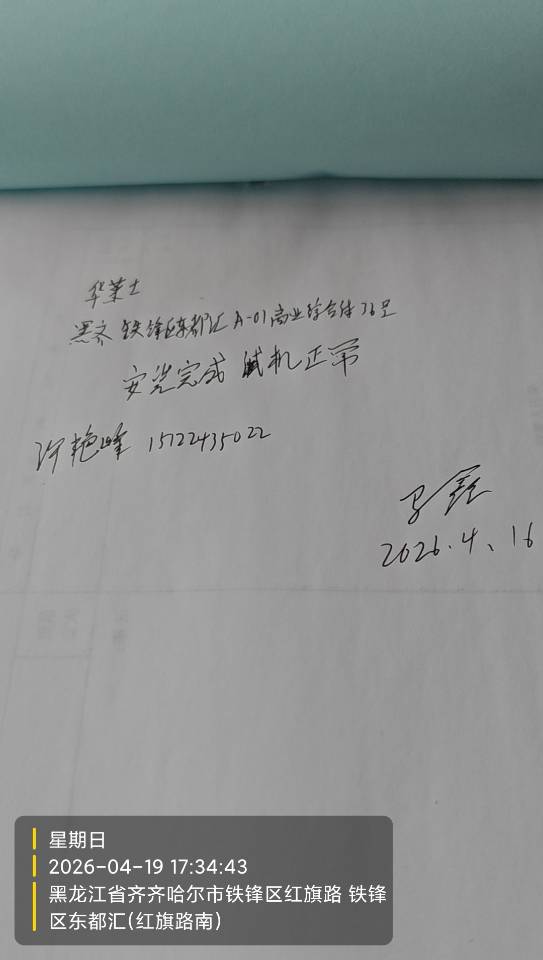 华莱士
黑齐 铁锋区东都汇 A-01商业综合体76号
安装完成 试机正常
许艳峰 15122435022
鑫
2026.4、16
星期日
2026-04-19 17:34:43
黑龙江省齐齐哈尔市铁锋区红旗路 铁锋
区东都汇(红旗路南)